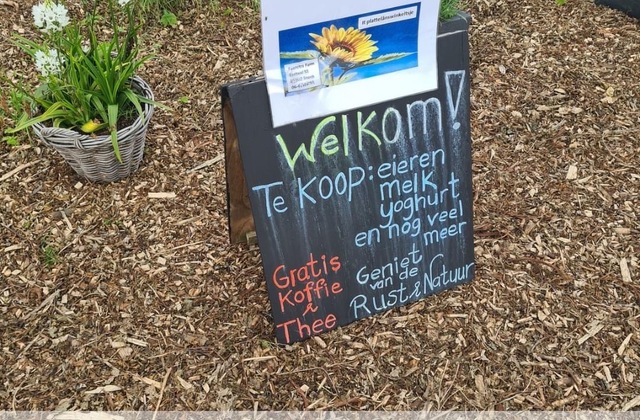 # plattelânswinkeltsje
Welkom!
Te Koop: eieren
melk
yoghurt
en nog veel
meer
Gratis
Koffie
&
Thee
Geniet
van de
Rust & Natuur